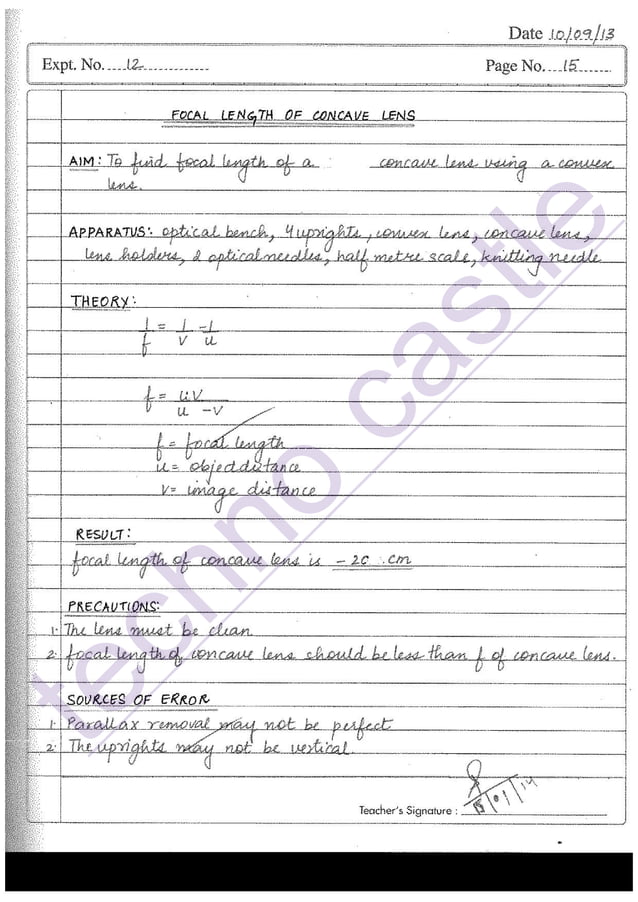 Date 10/09/13
Expt. No. 12
Page No. 15
FOCAL LENGTH OF CONCAVE LENS
AIM: To find focal length of a concave lens using a convex
lens.
APPARATUS: optical bench, 4 uprights, convex lens, concave lens,
lens holders, 2 optical needles, half metre scale, knitting needle
THEORY:
1/f = 1/v - 1/u
f = uv/u - v
f = focal length
u = object distance
v = image distance
RESULT:
focal length of concave lens is - 20 cm
PRECAUTIONS:
1. The lens must be clean
2. focal length of concave lens should be less than f of concave lens.
SOURCES OF ERROR
1. Parallax removal may not be perfect
2. The uprights may not be vertical.
Teacher's Signature :
techno castle